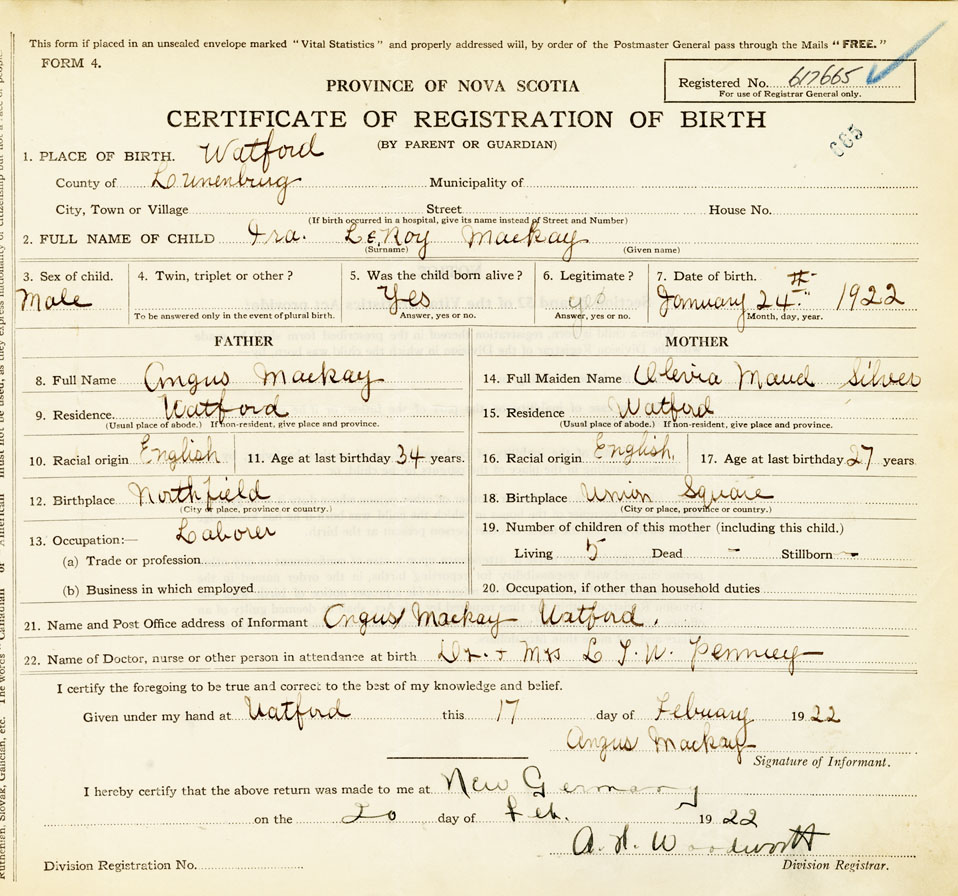 This form if placed in an unsealed envelope marked "Vital Statistics" and properly addressed will, by order of the Postmaster General pass through the Mails "FREE."
FORM 4.
Registered No. 617665
For use of Registrar General only.
PROVINCE OF NOVA SCOTIA
CERTIFICATE OF REGISTRATION OF BIRTH
(BY PARENT OR GUARDIAN)
665
1. PLACE OF BIRTH. Watford
County of Lunenburg Municipality of
City, Town or Village Street House No.
(If birth occurred in a hospital, give its name instead of Street and Number)
2. FULL NAME OF CHILD Ira. LeRoy Mackay
(Surname) (Given name)
3. Sex of child. 4. Twin, triplet or other? 5. Was the child born alive? 6. Legitimate? 7. Date of birth.
Male Yes yes January 24th 1922
To be answered only in the event of plural birth. Answer, yes or no. Answer, yes or no. Month, day, year.
FATHER MOTHER
8. Full Name Angus Mackay 14. Full Maiden Name Olevia Maud Silver
9. Residence. Watford 15. Residence Watford
(Usual place of abode.) If non-resident, give place and province. (Usual place of abode.) If non-resident, give place and province.
10. Racial origin English 11. Age at last birthday 34 years. 16. Racial origin English. 17. Age at last birthday 27 years
12. Birthplace Northfield 18. Birthplace Union Square
(City or place, province or country.) (City or place, province or country.)
13. Occupation:— Laborer 19. Number of children of this mother (including this child.)
(a) Trade or profession Living 5 Dead - Stillborn -
(b) Business in which employed 20. Occupation, if other than household duties
21. Name and Post Office address of Informant Angus Mackay Watford.
22. Name of Doctor, nurse or other person in attendance at birth Dr. + Mrs L T. W. Penney
I certify the foregoing to be true and correct to the best of my knowledge and belief.
Given under my hand at Watford this 17 day of February 1922
Angus Mackay
Signature of Informant.
I hereby certify that the above return was made to me at New Germany
on the 20 day of Feb. 1922
A. H. Woodworth
Division Registration No. Division Registrar.